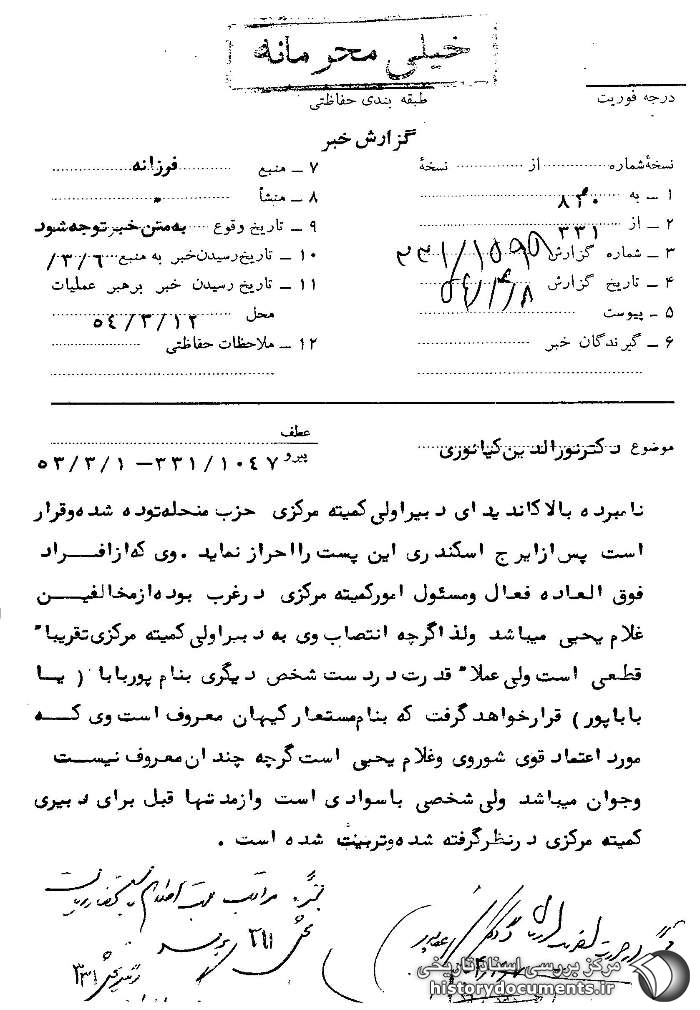 خیلی محرمانه
طبقه بندی حفاظتی
درجه فوریت
گزارش خبر
نسخهٔ شماره از نسخهٔ
۱ ــ به ۸۴۰
۲ ــ از ۳۳۱
۳ ــ شماره گزارش
۴ ــ تاریخ گزارش
۵ ــ پیوست
۶ ــ گیرندگان خبر
۷ ــ منبع فرزانه
۸ ــ منشأ
۹ ــ تاریخ وقوع به متن خبر توجه شود
۱۰ ــ تاریخ رسیدن خبر به منبع ۳/۶/
۱۱ ــ تاریخ رسیدن خبر برهبر عملیات
محل ۵۴/۳/۱۲
۱۲ ــ ملاحظات حفاظتی
موضوع دکتر نورالدین کیانوری
عطف
پیرو ۳۳۱/۱۰۴۷ - ۵۳/۳/۱
نامبرده بالا کاندیدای دبیر اولی کمیته مرکزی حزب منحله توده شده و قرار
است پس از ایرج اسکندری این پست را احراز نماید . وی که از افراد
فوق العاده فعال و مسئول امور کمیته مرکزی در غرب بوده از مخالفین
غلام یحیی میباشد ولذا گرچه انتصاب وی به دبیر اولی کمیته مرکزی تقریبا"
قطعی است ولی عملا" قدرت در دست شخص دیگری بنام پوربابا ( یا
باباپور ) قرار خواهد گرفت که بنام مستعار کیهان معروف است وی که
مورد اعتماد قوی شوروی و غلام یحیی است گرچه چندان معروف نیست
وجوان میباشد ولی شخصی باسوادی است و از مدتها قبل برای دبیری
کمیته مرکزی در نظر گرفته شده و تربیت شده است .
مرکز بررسی اسناد تاریخی
historydocuments.ir